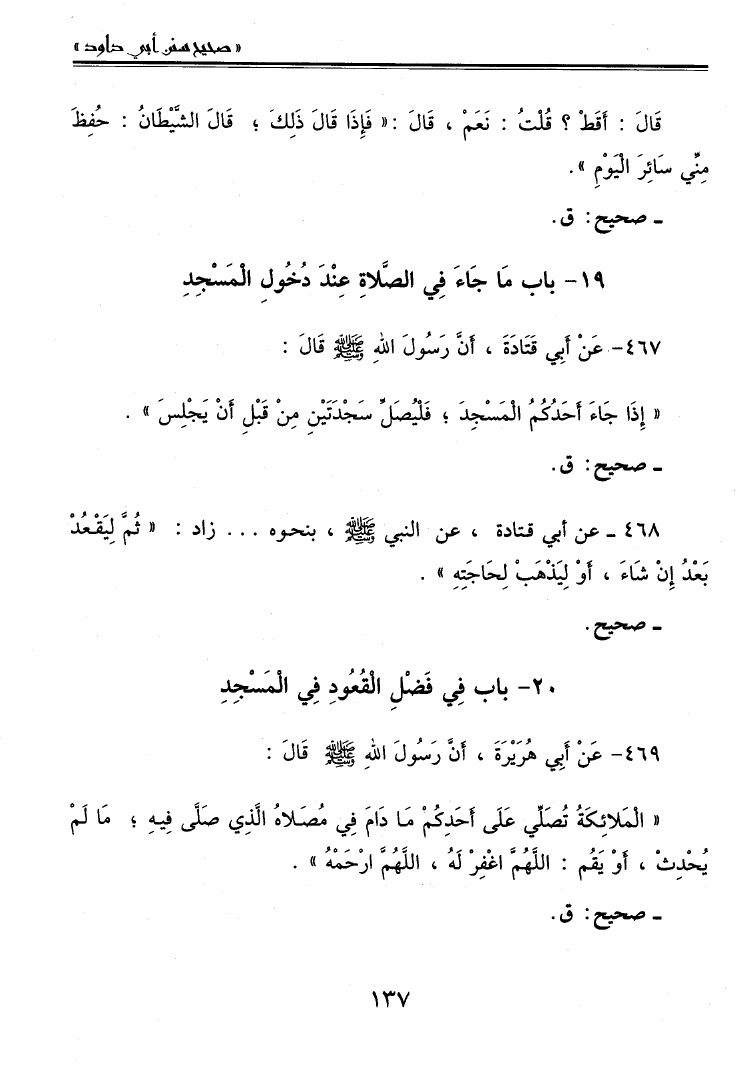 « صحيح سنن أبي داود »
قَالَ : أَقَطْ ؟ قُلْتُ : نَعَمْ ، قَالَ :« فَإِذَا قَالَ ذَلِكَ ؛ قَالَ الشَّيْطَانُ : حُفِظَ
مِنِّي سَائِرَ الْيَوْمِ ».
ـ صحيح: ق.
١٩- باب مَا جَاءَ فِي الصَّلاةِ عِنْدَ دُخُولِ الْمَسْجِدِ
٤٦٧- عَنْ أَبِي قَتَادَةَ ، أَنَّ رَسُولَ اللهِ ﷺ قَالَ :
« إِذَا جَاءَ أَحَدُكُمُ الْمَسْجِدَ ؛ فَلْيُصَلِّ سَجْدَتَيْنِ مِنْ قَبْلِ أَنْ يَجْلِسَ » .
ـ صحيح: ق.
٤٦٨ ـ عن أبي قتادة ، عن النبي ﷺ ، بنحوه ... زاد : « ثُمَّ لِيَقْعُدْ
بَعْدُ إِنْ شَاءَ ، أَوْ لِيَذْهَبْ لِحَاجَتِهِ » .
ـ صحيح.
٢٠- باب فِي فَضْلِ الْقُعُودِ فِي الْمَسْجِدِ
٤٦٩- عَنْ أَبِي هُرَيْرَةَ ، أَنَّ رَسُولَ اللهِ ﷺ قَالَ :
« الْمَلائِكَةُ تُصَلِّي عَلَى أَحَدِكُمْ مَا دَامَ فِي مُصَلاهُ الَّذِي صَلَّى فِيهِ ؛ مَا لَمْ
يُحْدِثْ ، أَوْ يَقُم : اللَّهُمَّ اغْفِرْ لَهُ ، اللَّهُمَّ ارْحَمْهُ » .
ـ صحيح: ق.
١٣٧